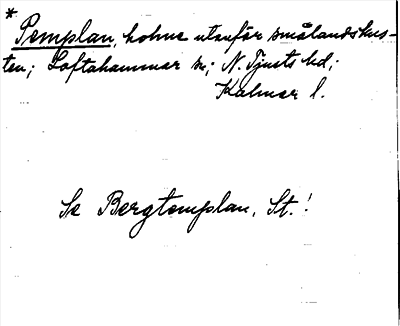 *
Pemplan, holme utanför smålandskus-
ten; Loftahammar sn; N. Tjusts hd;
Kalmar l.
Se Bergtemplan, St.!